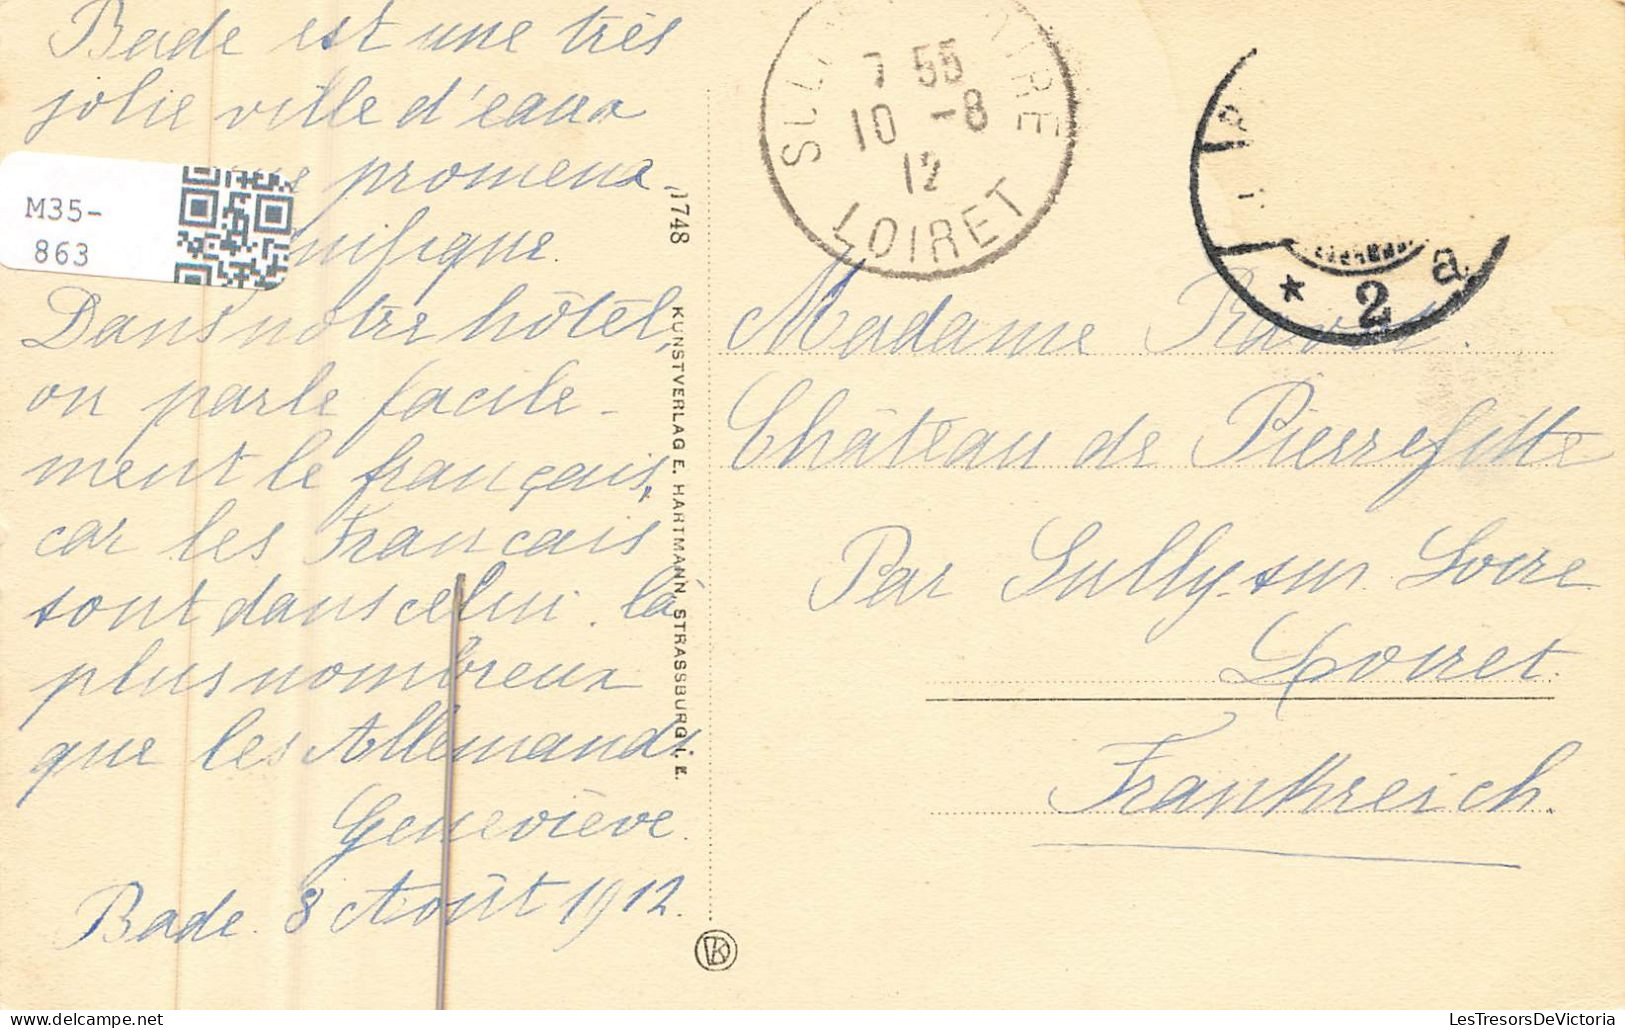 Bade est une très
jolie ville d'eaux
promena-
nifique.
Dans notre hôtel,
on parle facile-
ment le français,
car les Francais
sont dans celui-là
plus nombreux
que les Allemands
Geneviève.
Bade. 8 Août 1912.
M35-
863
1748
KUNSTVERLAG E. HARTMANN, STRASSBURG i. E.
7 55
10 -8
12
LOIRET
* 2 a
Madame
Château de Pierrefitte
Par Sully-sur-Loire
Loiret.
Frankreich.
LesTresorsDeVictoria